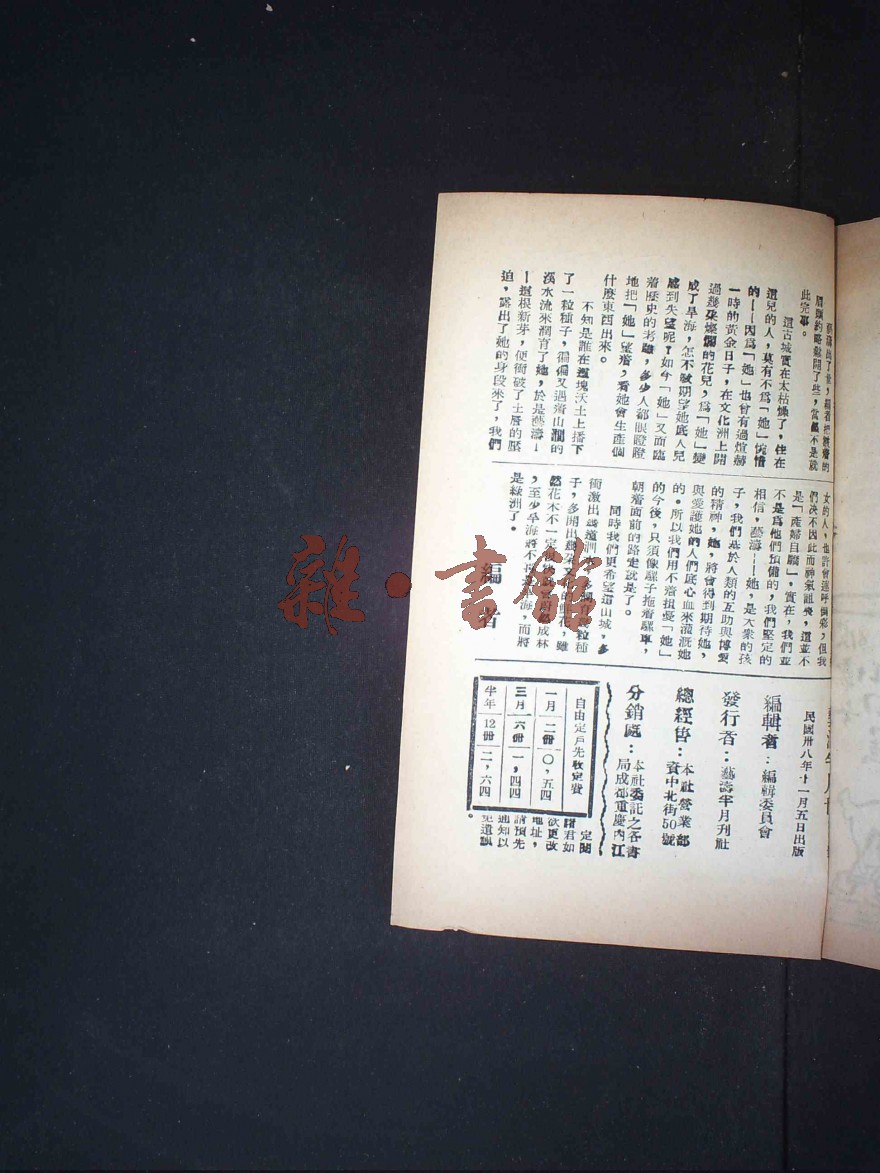 眉頭約略鬆開了些，當不是就
此完事。
這古城實在太枯燥了，住在
這兒的人，莫有不爲「她」惋惜
的——因爲「她」也曾有過煊赫
一時的黃金日子，在文化洲上開
過幾朶燦爛的花兒，爲「她」變
成了旱海，怎不敎期望她底人兒
感到失望呢？如今「她」又面臨
着歷史的考驗，多少人都眼瞪瞪
地把「她」望着，看她會生產個
什麼東西出來。
不知是誰在這塊沃土上播下
了一粒種子，偏偏又遇着山澗的
溪水流來潤育了她，於是藝濤—
—這根新芽，便衝破了土層的壓
迫，露出了她的身段來了，我們
女的人，也許會連呼倒彩，但我
們決不因此而神氣沮喪，這並不
是「產婦自驕」，實在，我們並
不是爲他們預備的，我們堅定的
相信，藝濤——她，是大衆的孩
子，我們基於人類的互助與博愛
的精神，她，將會得到期待她，
與愛護她的人們底心血來灌漑她
的。所以我們用不着担憂「她」
的今後，只須像騾子拖着騾車，
朝着面前的路走就是了。
同時我們更希望這山城，多
衝激出幾道
子，多開出幾朶
然花木不一定
，至少旱海將不
是綠洲了。
編者
民國卅八年十一月五日出版
編輯者：編輯委員會
發行者：藝濤半月刊社
總經售：本社營業部
資中北街50號
分銷處：本社委託之各書
局成都重慶內江
自由定戶先收定費
一月 二冊 〇，五四
三月 六冊 一，四四
半年 12冊 二，六四
定閱
諸君如
欲更改
地址，
請預先
通知以
免遺誤
。
雜·書館